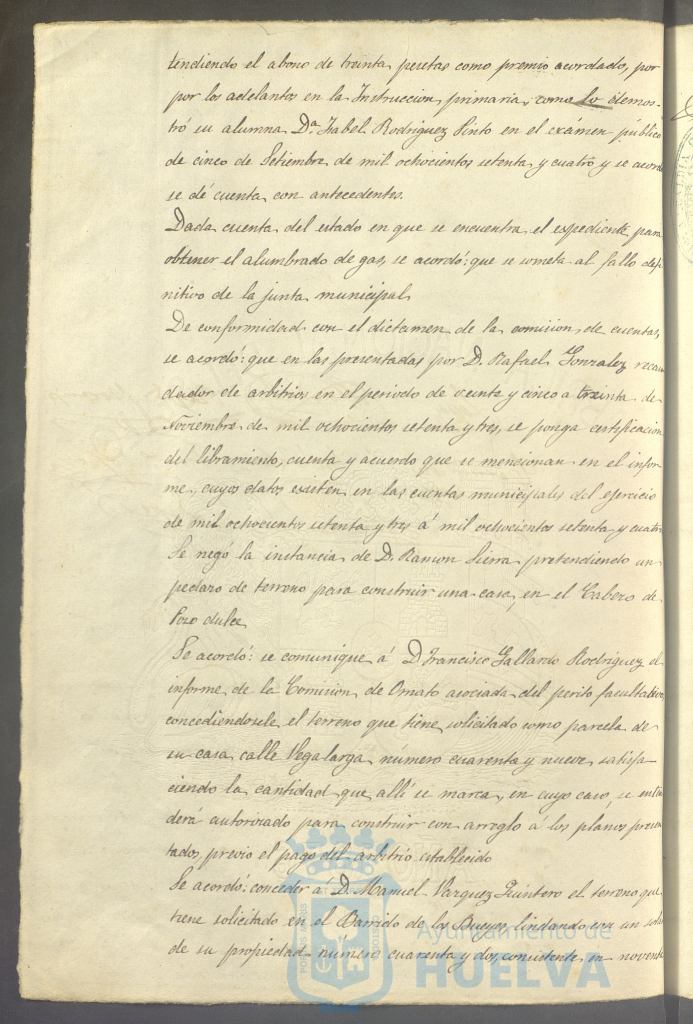 tendiendo el abono de treinta pesetas como premio acordado, por
por los adelantos en la Instruccion primaria, como lo demos-
tró su alumna D.ª Isabel Rodriguez Pinto en el exámen público
de cinco de Setiembre de mil ochocientos setenta y cuatro y se acord
se dé cuenta con antecedentes.
Dada cuenta del estado en que se encuentra el espediente para
obtener el alumbrado de gas, se acordó: que se someta al fallo defi
nitivo de la junta municipal
De conformidad con el dictamen de la comision de cuentas,
se acordó: que en las presentadas por D. Rafael Gonzalez recau
dador de arbitrios en el periodo de veinte y cinco a treinta de
Noviembre de mil ochocientos setenta y tres, se ponga certificacion
del libramiento, cuenta y acuerdo que se mencionan en el infor-
me, cuyos datos existen en las cuentas municipales del ejercicio
de mil ochocientos setenta y tres á mil ochocientos setenta y cuatro
Se negó la instancia de D. Ramon Sierra pretendiendo un
pedazo de terreno para construir una casa, en el Cabezo de
Pozo dulce
Se acordó: se comunique á D. Francisco Gallardo Rodriguez el
informe de la Comision de Ornato asociada del perito facultativo,
concediendosele el terreno que tiene solicitado como parcela de
su casa calle Vegalarga número cuarenta y nueve, satisfa
ciendo la cantidad que allí se marca, en cuyo caso, se enten
derá autorizado para construir con arreglo á los planos presen
tados, previo el pago del arbitrio establecido
Se acordó: conceder á D. Manuel Vazquez Quintero el terreno que
tiene solicitado en el Barrido de los Bueyes, lindando con un solar
de su propiedad número cuarenta y dos, consistente en noventa
Ayuntamiento de
HUELVA